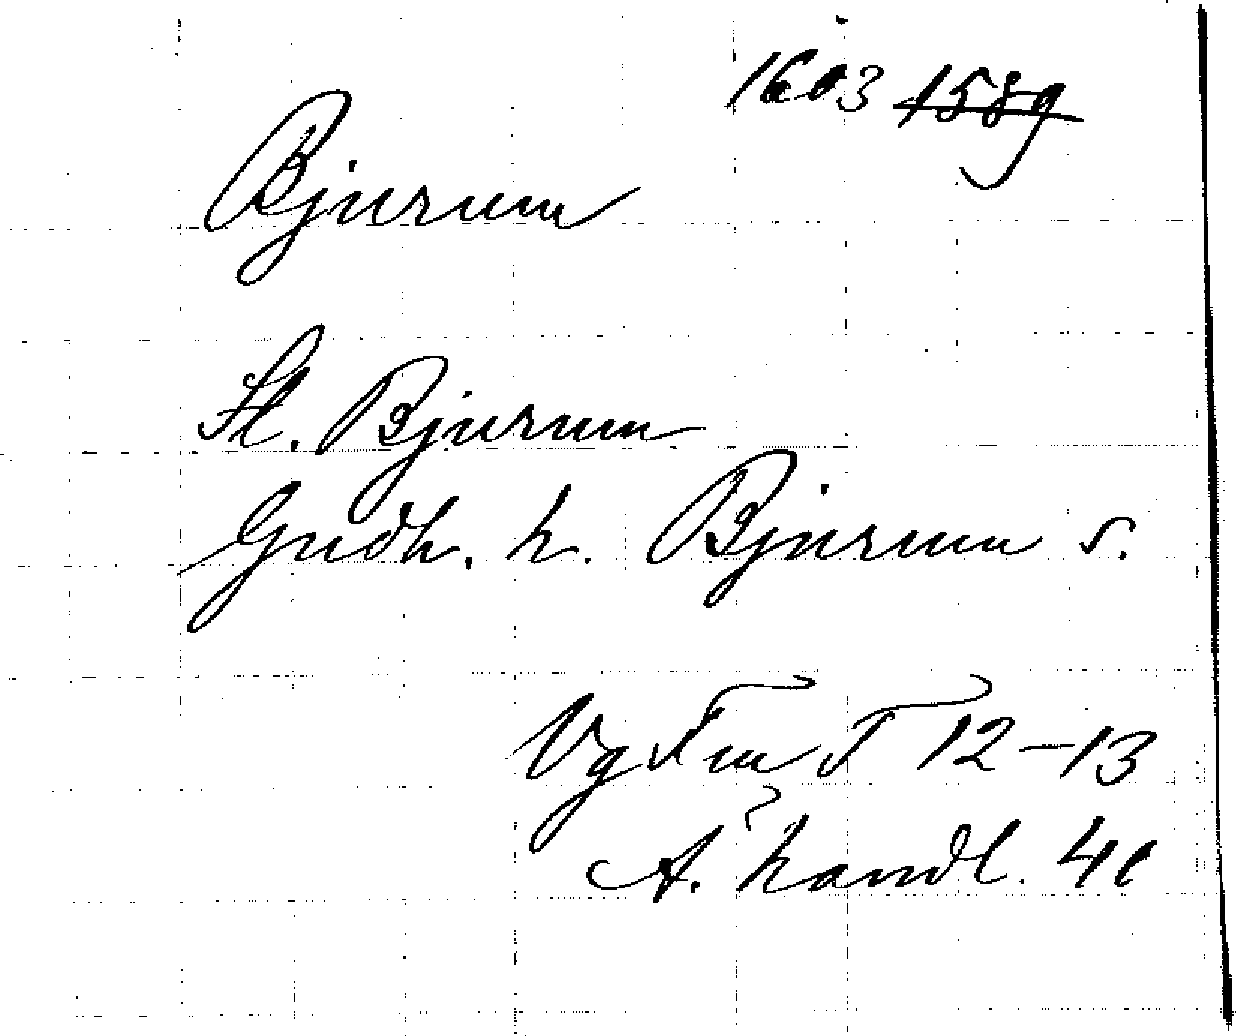 1603 1589
Bjurum
St. Bjurum
Gudh. h. Bjurum s.
Vg Fmt T 12-13
A. handl. 41